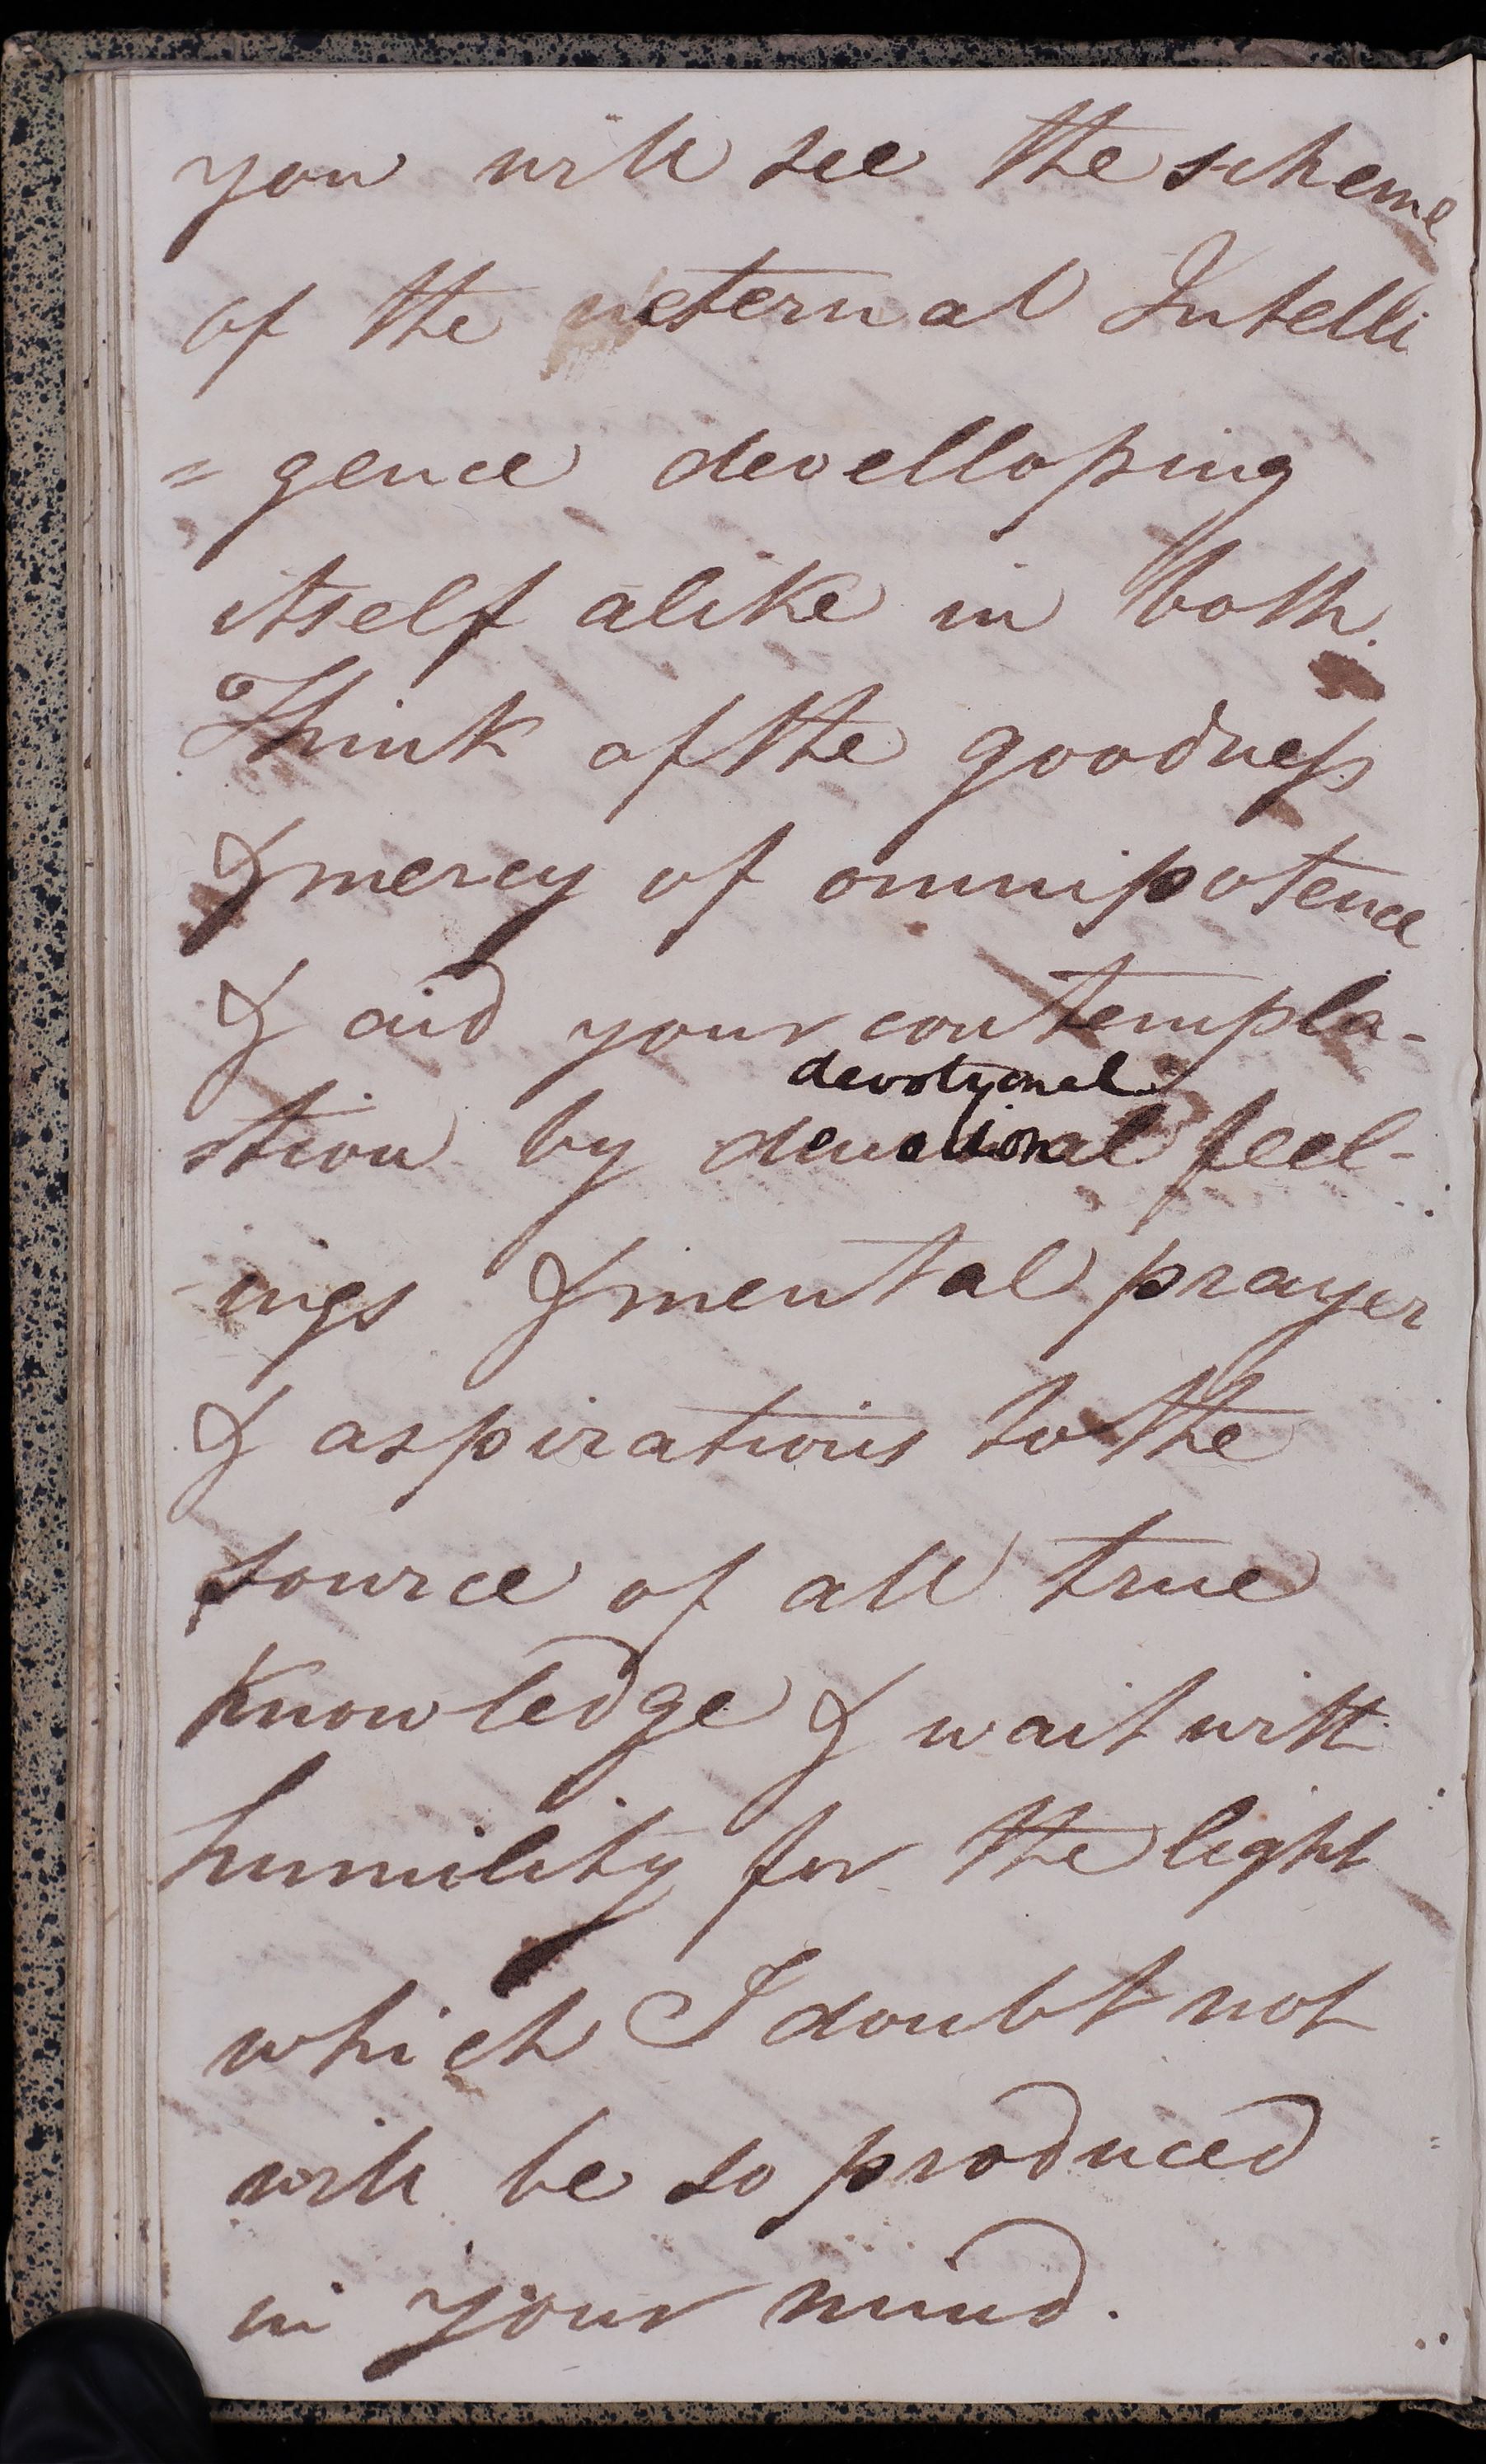 you will see the scheme
of the eternal Intelli
= gence develloping
itself alike in both.
Think of the goodness
& mercy of omnipotence
& aid your contempla-
devotional
-tion by devotional feel-
-ings & mental prayer
& aspirations to the
source of all true
Knowledge & wait with
humility for the light
which I doubt not
will be so produced
in your mind.